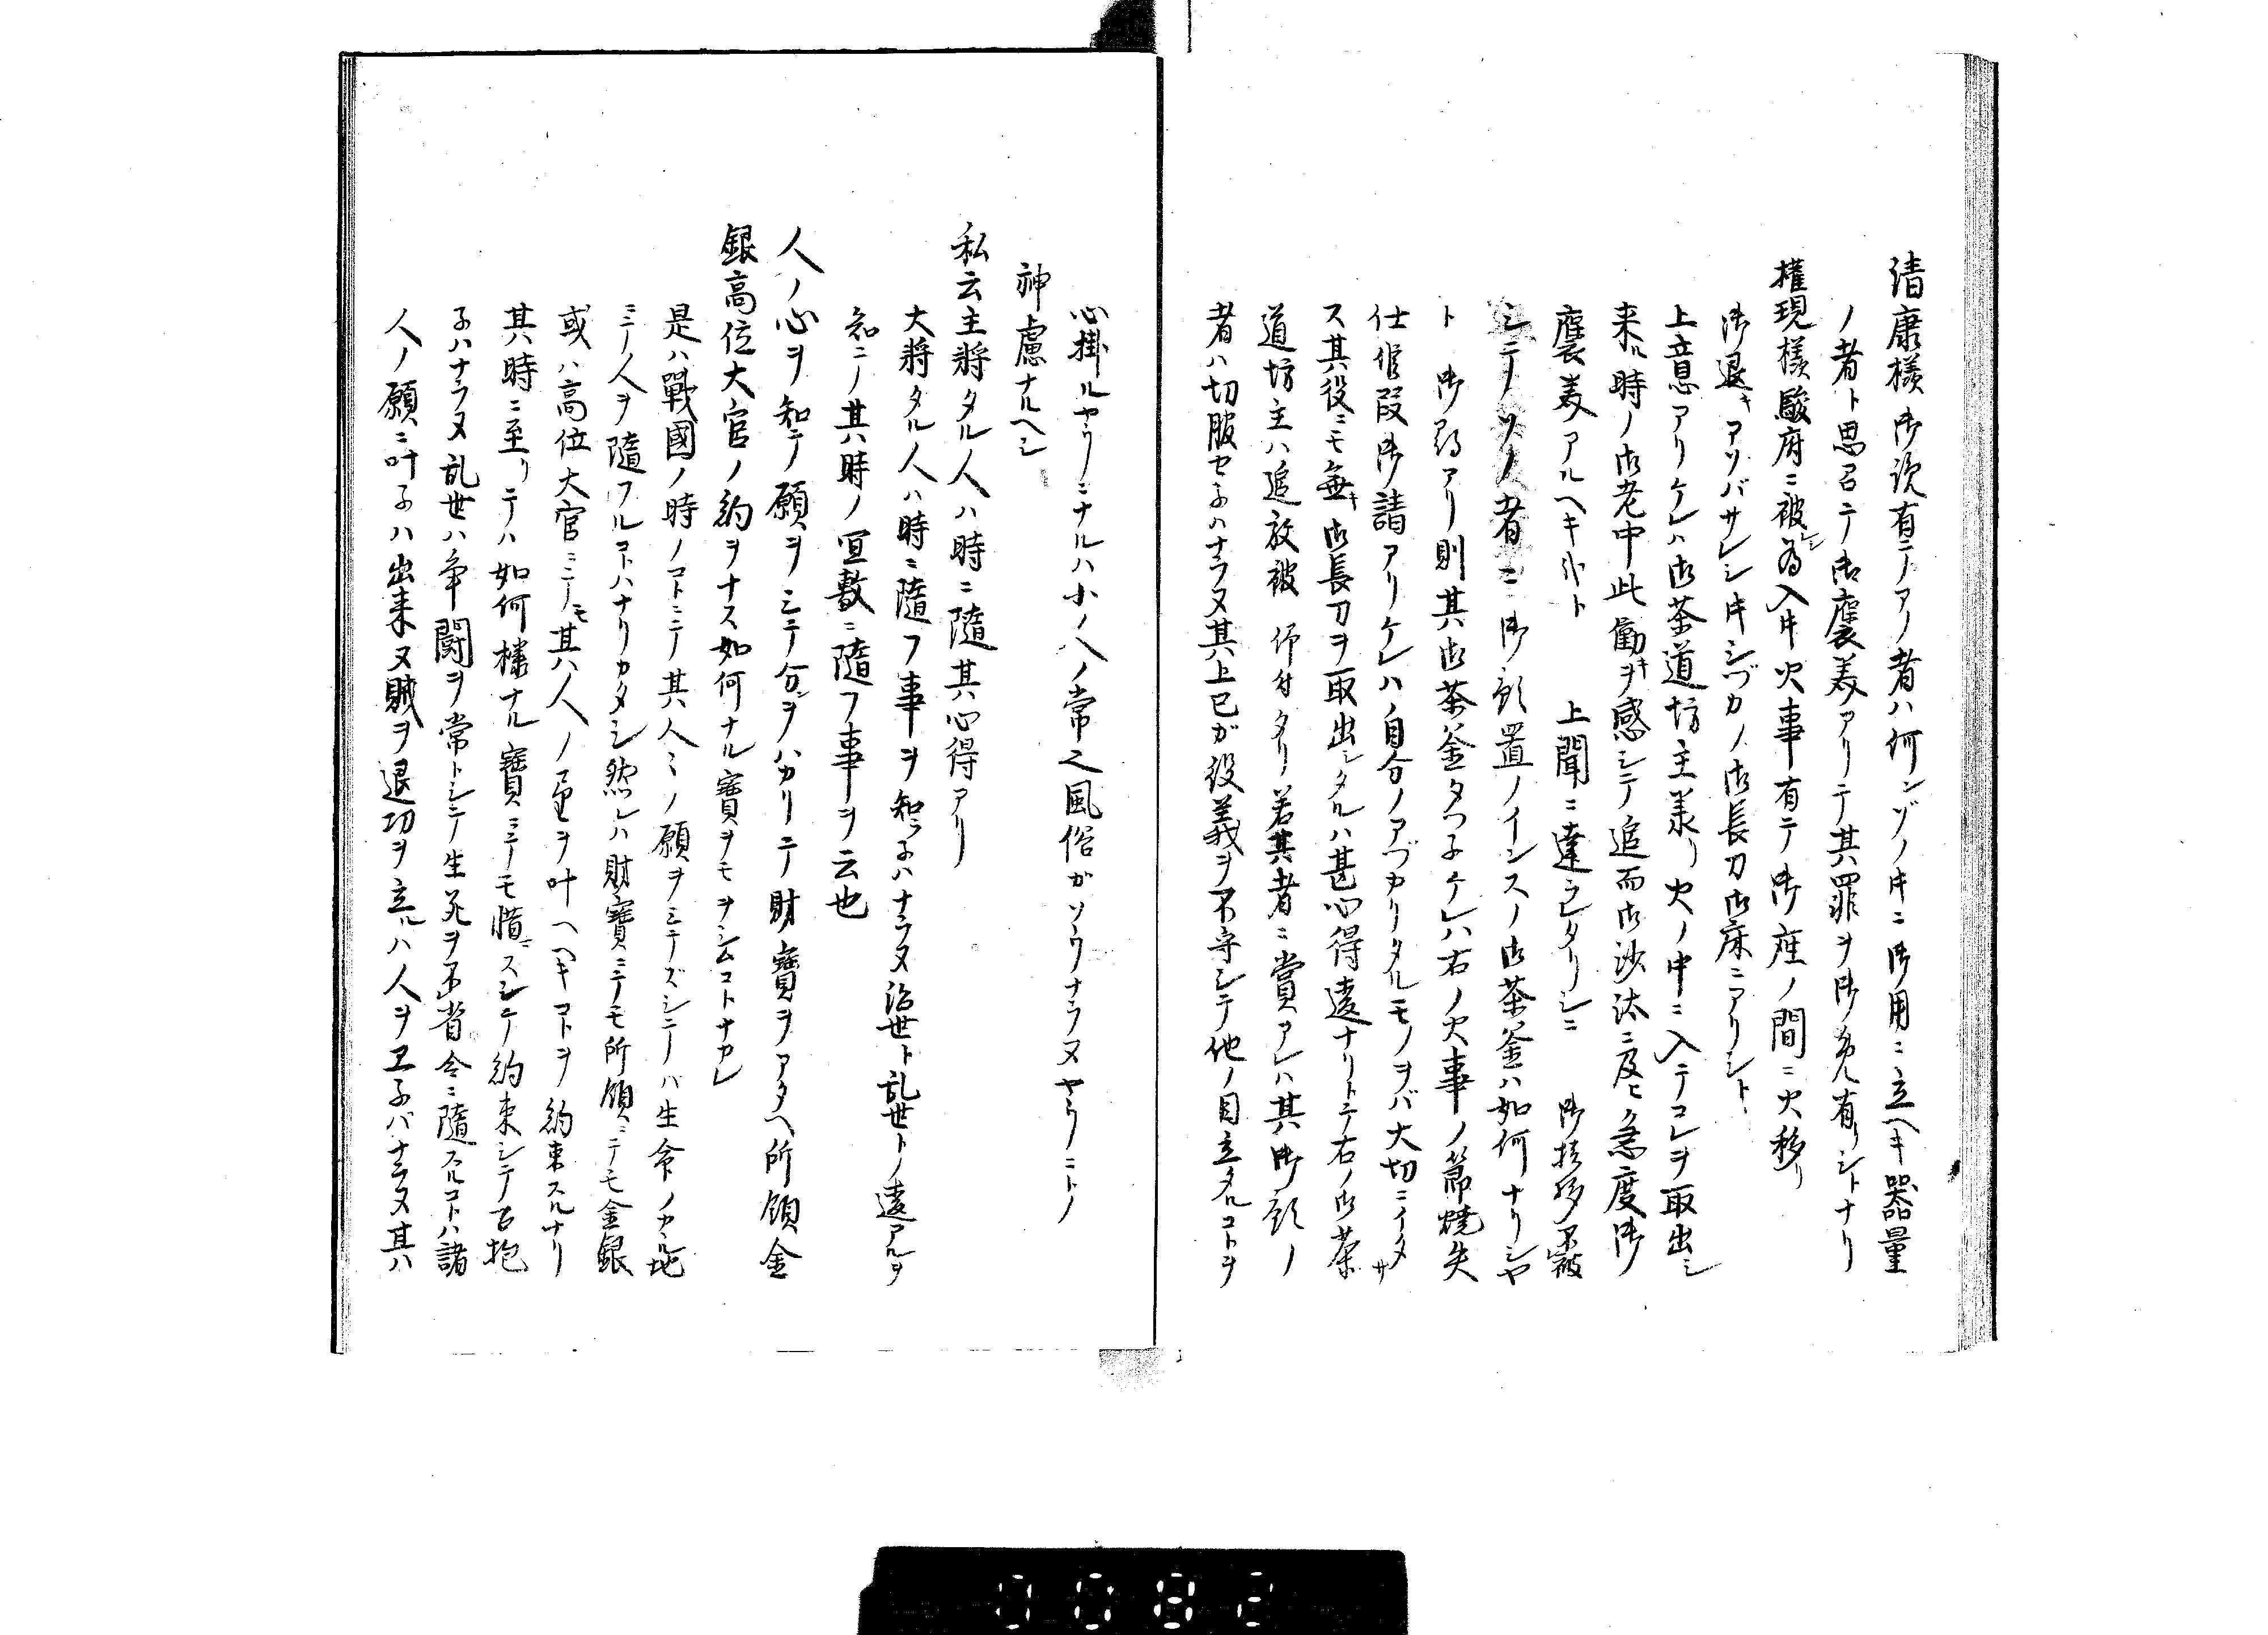 清康様御説有テアノ者ハ何ンゾノ時ニ御用ニ立ヘキ器量
ノ者ト思召テ御褒美アリテ其罪ヲ御免有リシトナリ
權現様駿府ニ被為入時火事有テ御座ノ間ニ火移リ
御退キアソバサレシ時シヅカノ御長刀御床ニアリシト
上意アリケレハ御茶道坊主羕リ火ノ中ニ入テコレヲ取出シ
来ル時ノ御老中此働キヲ感シテ追而御沙汰ニ及ヒ急度御
褒美アルヘキ 上聞ニ達ラレタリシニ 御挨拶不被
シテノ者ニ御預置ノインスノ御茶釜ハ如何ナリシヤ
ト 御尋アリ則其御茶釜タツ子ケレハ右ノ火事ノ節焼失
仕候段御請アリケレハ自分ノアヅカリタルモノヲバ大切ニイタサ
ス其役ニモ無キ御長刀ヲ取出シタルハ甚心得違ナリトテ右ノ御茶
道坊主ハ追放被 仰付タリ若其者ニ賞アレハ其御預ノ
者ハ切服セ子ハナラヌ其上已が役義ヲ不守シテ他ノ目立タルコトヲ
心掛ルヤウニナルハ小人ノ常之風俗がソウナラヌヤウニトノ
神慮ナルヘシ
私云主將タル人ハ時ニ隨其心得アリ
大將タル人ハ時ニ隨フ事ヲ知ラ子ハナラヌ治世ト乱世トノ違アルヲ
知テ其時ノ宜敷ニ隨フ事ヲ云也
人ノ心ヲ知テ願ヲシテ分ヲハカリテ財寶ヲアタヘ所領金
銀高位大官ノ約ヲナス如何ナル寶ヲモヲシムコトナカレ
是ハ戰國ノ時ノコトニテ其人々ノ願ヲミテズシテハ生命ノカヽル地
ニテ人ヲ隨フルコトハナリカタシ然レハ財寶ニテモ所領ニテモ金銀
或ハ高位大官ニテモ其人ノ望ヲ叶ヘヘキコトヲ約束スルナリ
其時ニ至リテハ如何様ナル寶ニテモ惜ニスシテ約束シテ召抱
子ハナラヌ乱世ハ争闘ヲ常トシテ生死ヲ不省令ニ隨スルコトハ諸
人ノ願ニ叶子ハ出来ヌ賊ヲ退功ヲ立ルハ人ヲヱ子バナラヌ其ハ